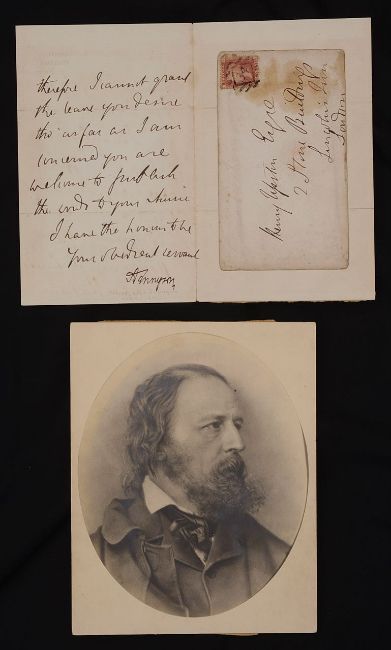 therefore I cannot grant
the leave you desire
tho' as far as I am
concerned you are
welcome to publish
the words to your music
I have the honour to be
Your obedient servant
A Tennyson
Henry Esqre
2 Stone Buildings
Lincoln's Inn
London